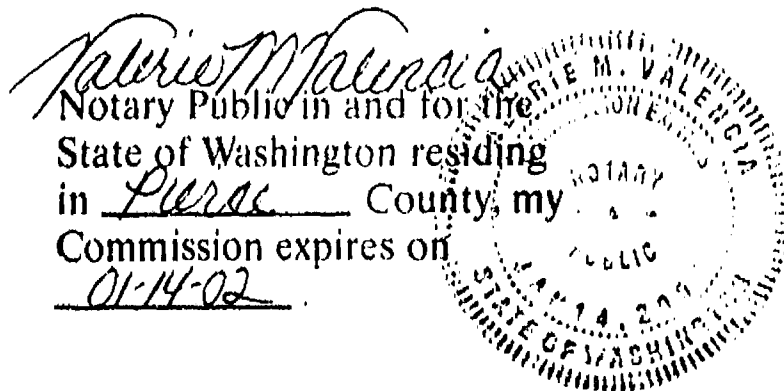 Valerie M Valencia
Notary Public in and for the
State of Washington residing
in Pierce County, my
Commission expires on
01-14-02.
RIE M. VALENCIA
NOTARY
PUBLIC
JAN 14, 200
STATE OF WASHINGTON